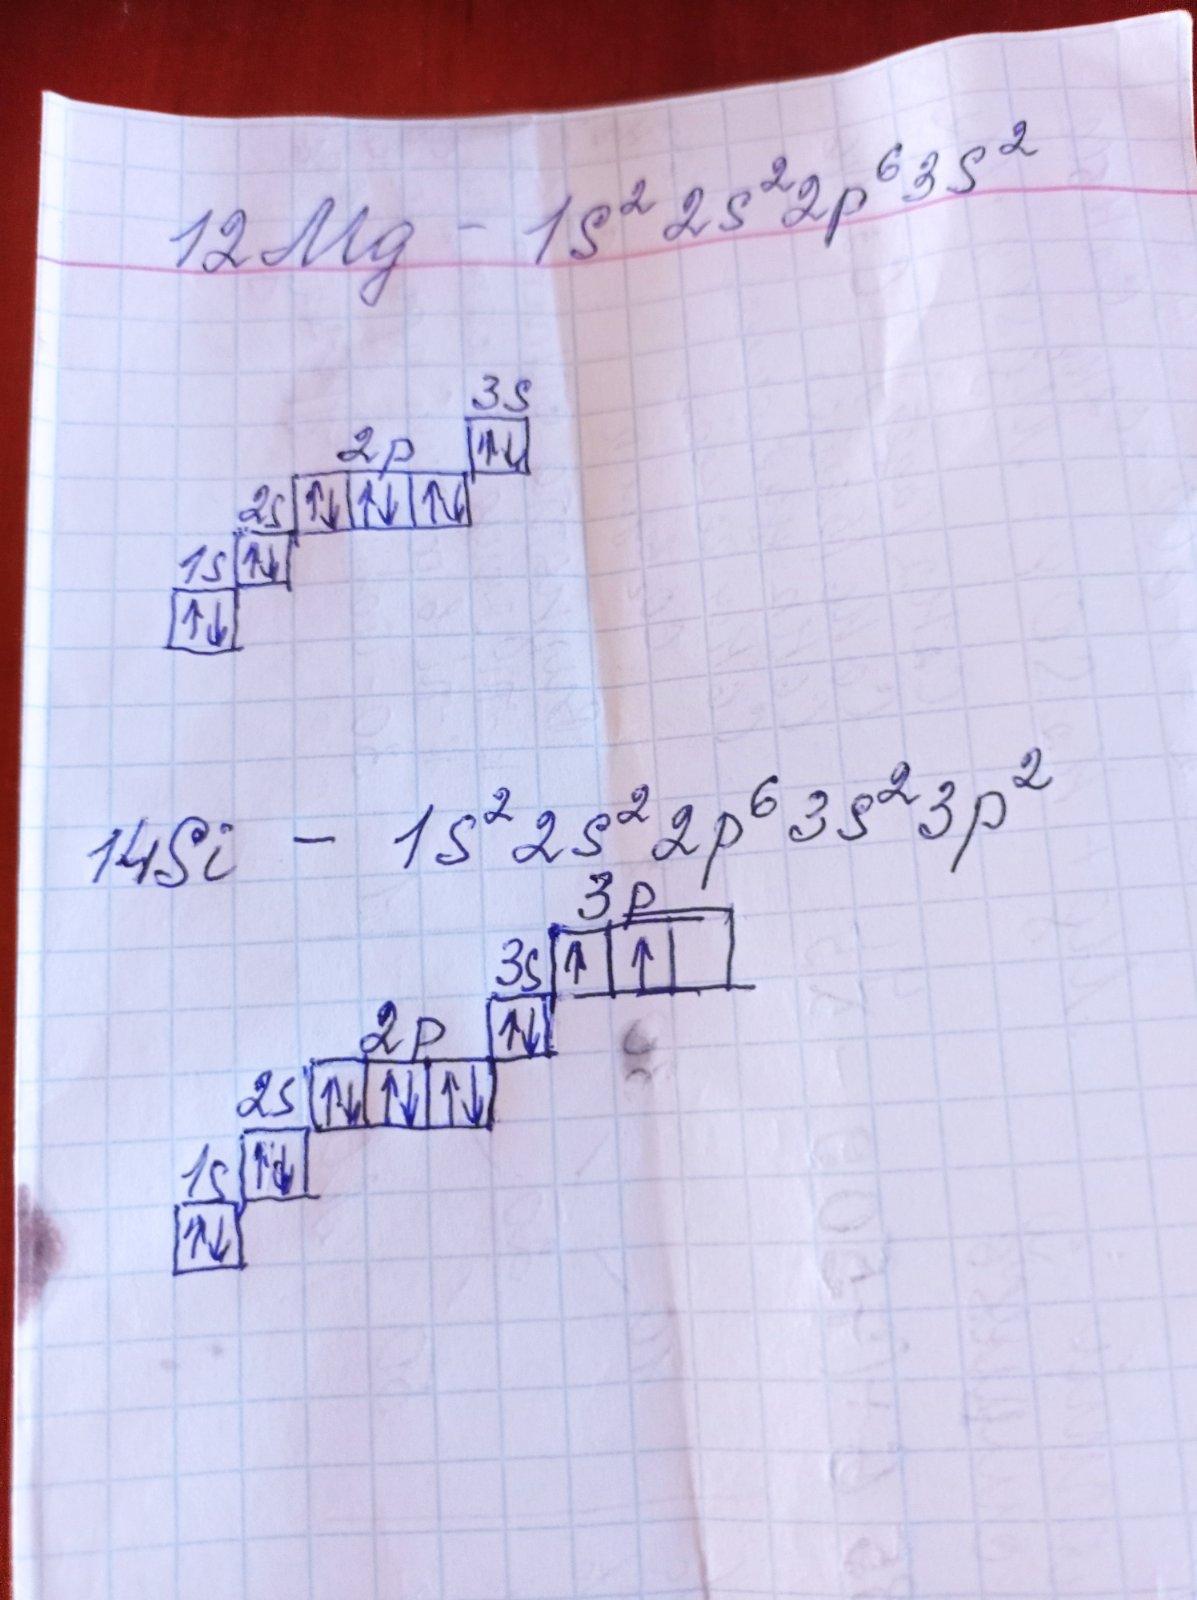 12Mg - 1s² 2s² 2p⁶ 3s²
3s
↑↓
2p
↑↓ ↑↓ ↑↓
2s
↑↓
1s
↑↓
14Si - 1s² 2s² 2p⁶ 3s² 3p²
3p
↑ ↑
3s
↑↓
2p
↑↓ ↑↓ ↑↓
2s
↑↓
1s
↑↓